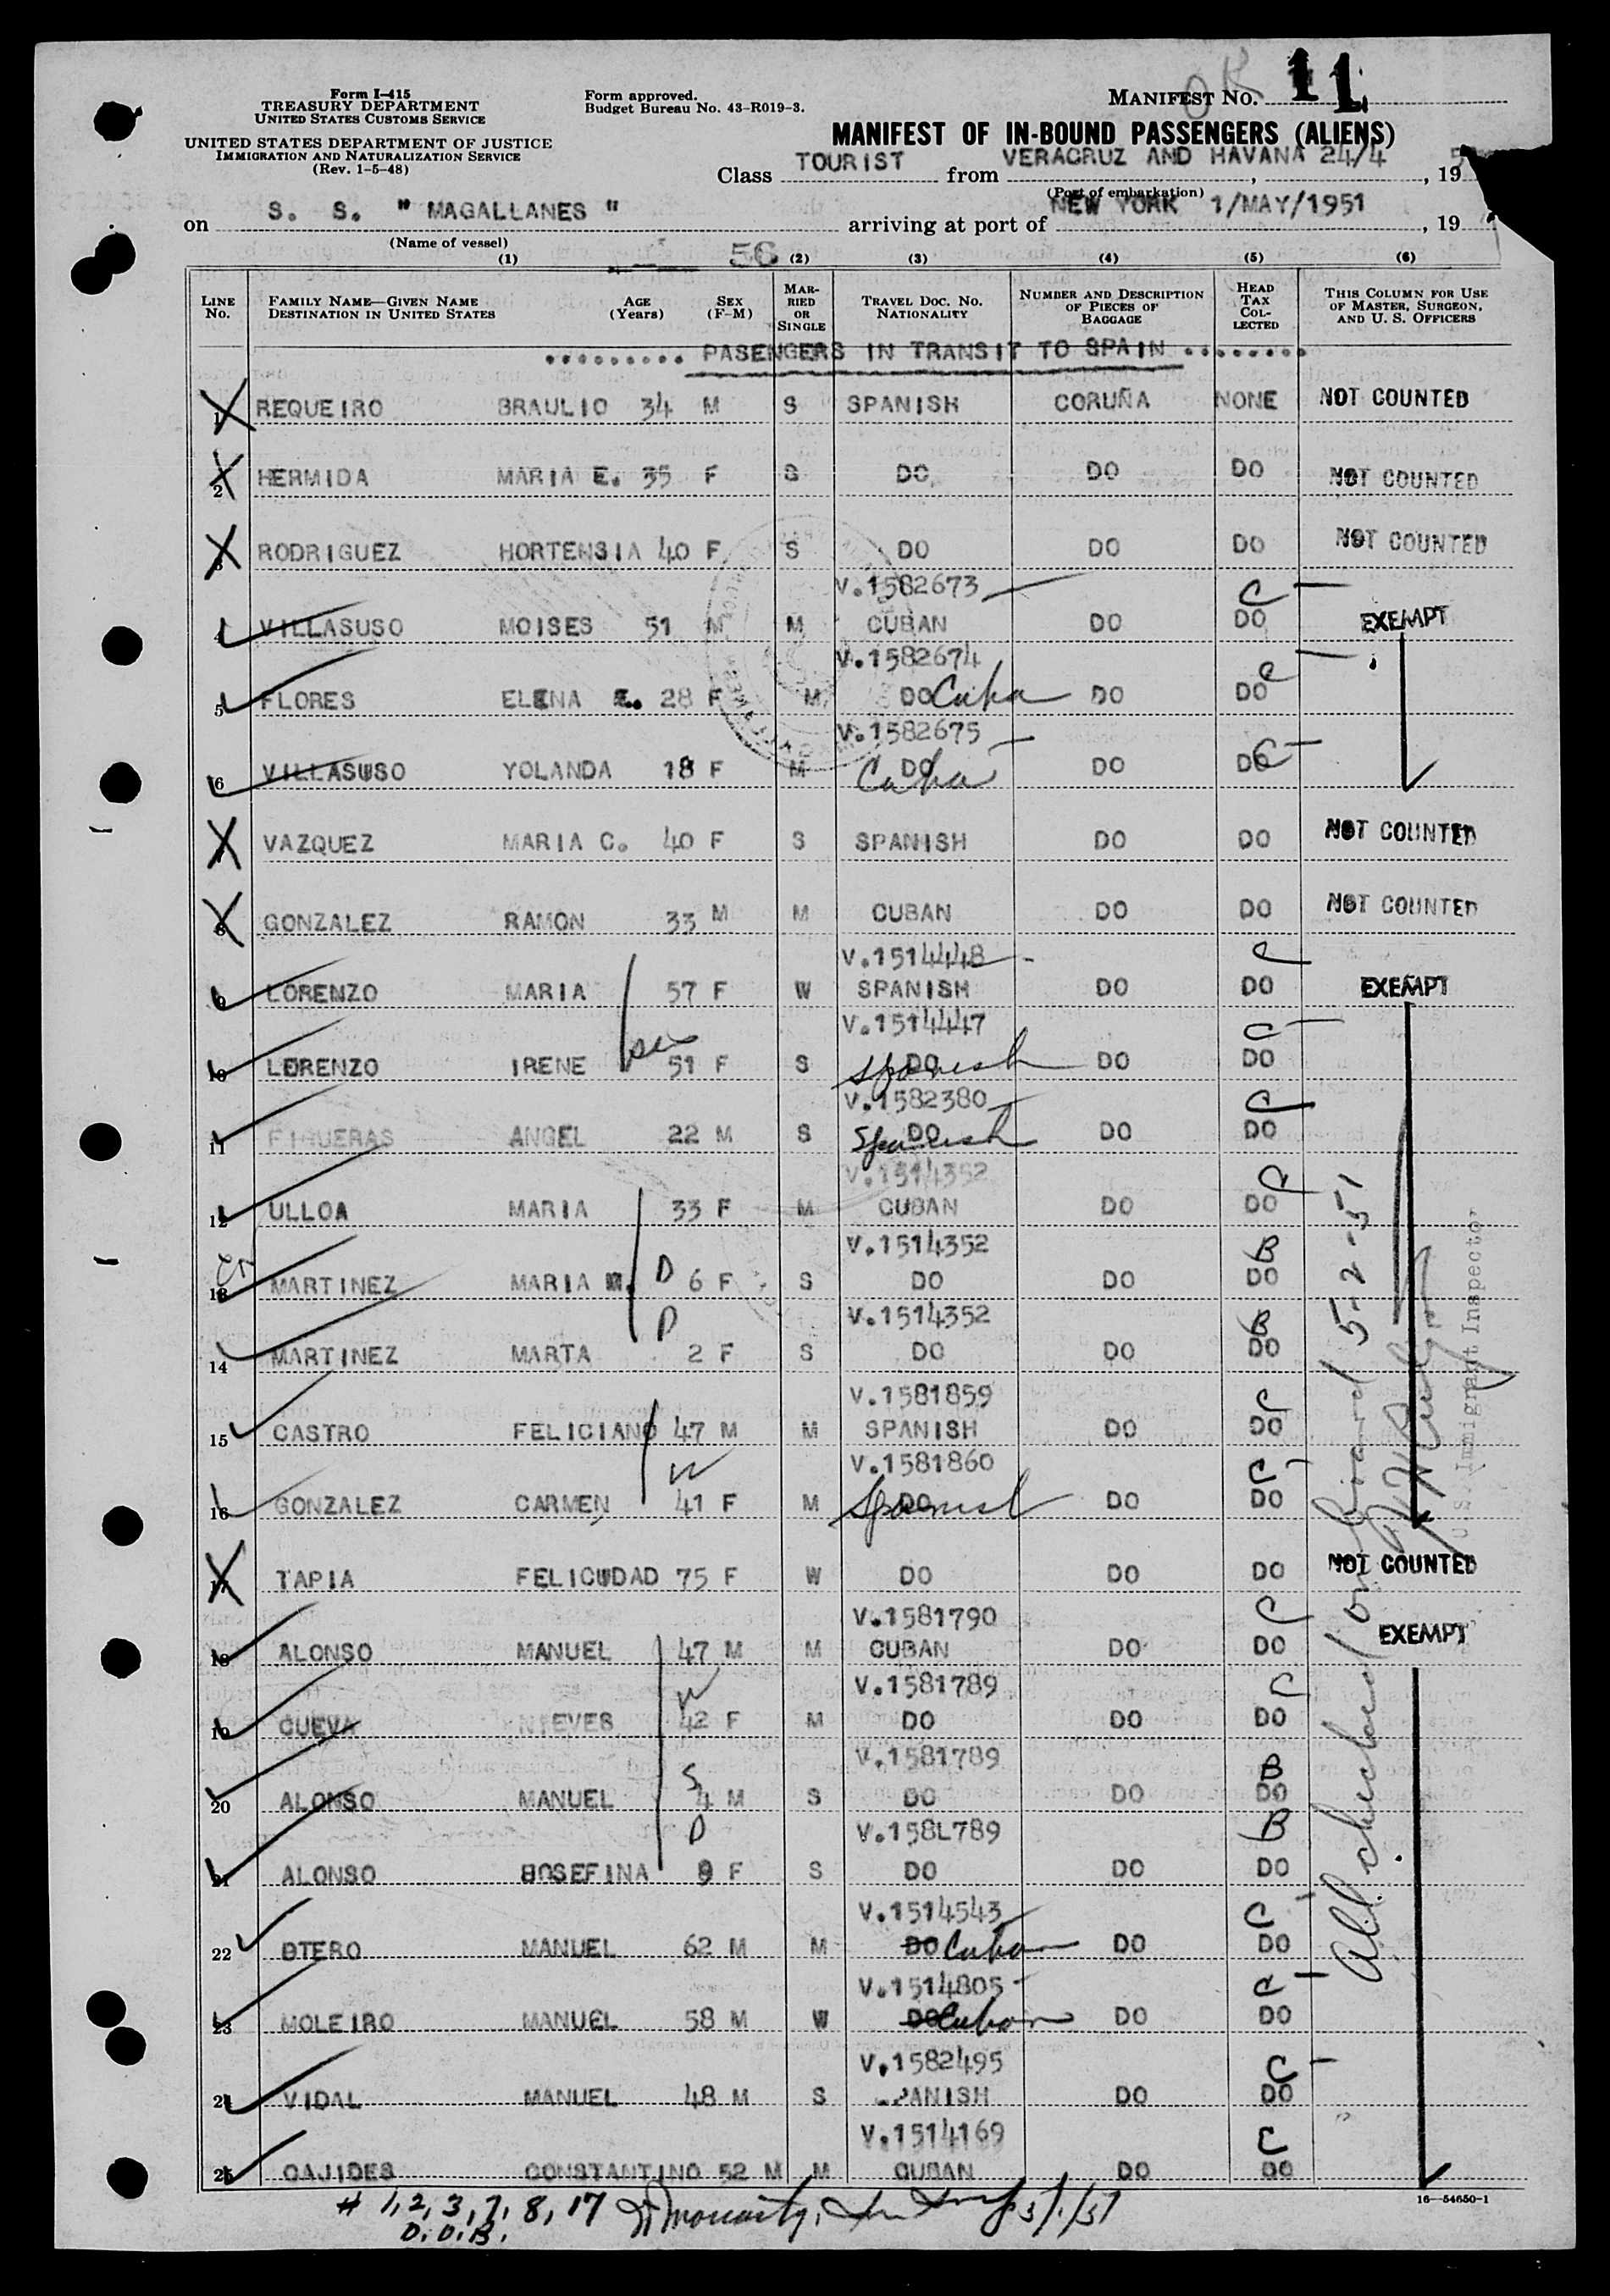 OK
Form I-415
TREASURY DEPARTMENT
UNITED STATES CUSTOMS SERVICE
UNITED STATES DEPARTMENT OF JUSTICE
IMMIGRATION AND NATURALIZATION SERVICE
(Rev. 1-5-48)
Form approved.
Budget Bureau No. 43-R019-3.
MANIFEST NO. 11
MANIFEST OF IN-BOUND PASSENGERS (ALIENS)
Class TOURIST from VERACRUZ AND HAVANA 24/4, 19 5
(Port of embarkation)
on S. S. " MAGALLANES " arriving at port of NEW YORK 1/MAY/1951, 19
(Name of vessel)
56
(1) (2) (3) (4) (5) (6)
LINE NO. FAMILY NAME—GIVEN NAME DESTINATION IN UNITED STATES AGE (Years) SEX (F-M) MARRIED OR SINGLE TRAVEL DOC. NO. NATIONALITY NUMBER AND DESCRIPTION OF PIECES OF BAGGAGE HEAD TAX COLLECTED THIS COLUMN FOR USE OF MASTER, SURGEON, AND U. S. OFFICERS
......... PASENGERS IN TRANSIT TO SPAIN ........
1 REQUEIRO BRAULIO 34 M S SPANISH CORUÑA NONE NOT COUNTED
2 HERMIDA MARIA E. 35 F S DO, DO DO NOT COUNTED
3 RODRIGUEZ HORTENSIA 40 F S DO DO DO NOT COUNTED
V.1582673 C
4 VILLASUSO MOISES 51 M M CUBAN DO DO EXEMPT
V.1582674 C
5 FLORES ELENA E. 28 F M DO Cuba DO DO
V.1582675 C
6 VILLASUSO YOLANDA 18 F M DO Cuba DO DO
7 VAZQUEZ MARIA C. 40 F S SPANISH DO DO NOT COUNTED
8 GONZALEZ RAMON 33 M M CUBAN DO DO NOT COUNTED
V.1514448 C
9 LORENZO MARIA 57 F W SPANISH DO DO EXEMPT
V.1514447 C
10 LORENZO IRENE sis 51 F S DO Spanish DO DO
V.1582380 C
11 FIGUERAS ANGEL 22 M S DO Spanish DO DO
V.1514352 C
12 ULLOA MARIA 33 F M CUBAN DO DO
V.1514352 B
13 MARTINEZ MARIA M. D 6 F S DO DO DO
D V.1514352 B
14 MARTINEZ MARTA 2 F S DO DO DO
V.1581859 C
15 CASTRO FELICIANO 47 M M SPANISH DO DO
W V.1581860 C
16 GONZALEZ CARMEN 41 F M DO Spanish DO DO
17 TAPIA FELICUDAD 75 F W DO DO DO NOT COUNTED
V.1581790 C
18 ALONSO MANUEL 47 M M CUBAN DO DO EXEMPT
W V.1581789 C
19 CUEVA NIEVES 42 F M DO DO DO
S V.1581789 B
20 ALONSO MANUEL 4 M S DO DO DO
D V.158L789 B
21 ALONSO BOSEFINA 9 F S DO DO DO
V.1514543 C
22 OTERO MANUEL 62 M M DO Cuban DO DO
V.1514805 C
23 MOLEIRO MANUEL 58 M W DO Cuban DO DO
V.1582495 C
24 VIDAL MANUEL 48 M S SPANISH DO DO
V.1514169 C
25 CAJIDES CONSTANTINO 52 M M CUBAN DO DO
All checked on board 5-2-51
U.S. Immigrant Inspector
# 1, 2, 3, 7, 8, 17
D.O.B.
5/1/51
16—54650-1